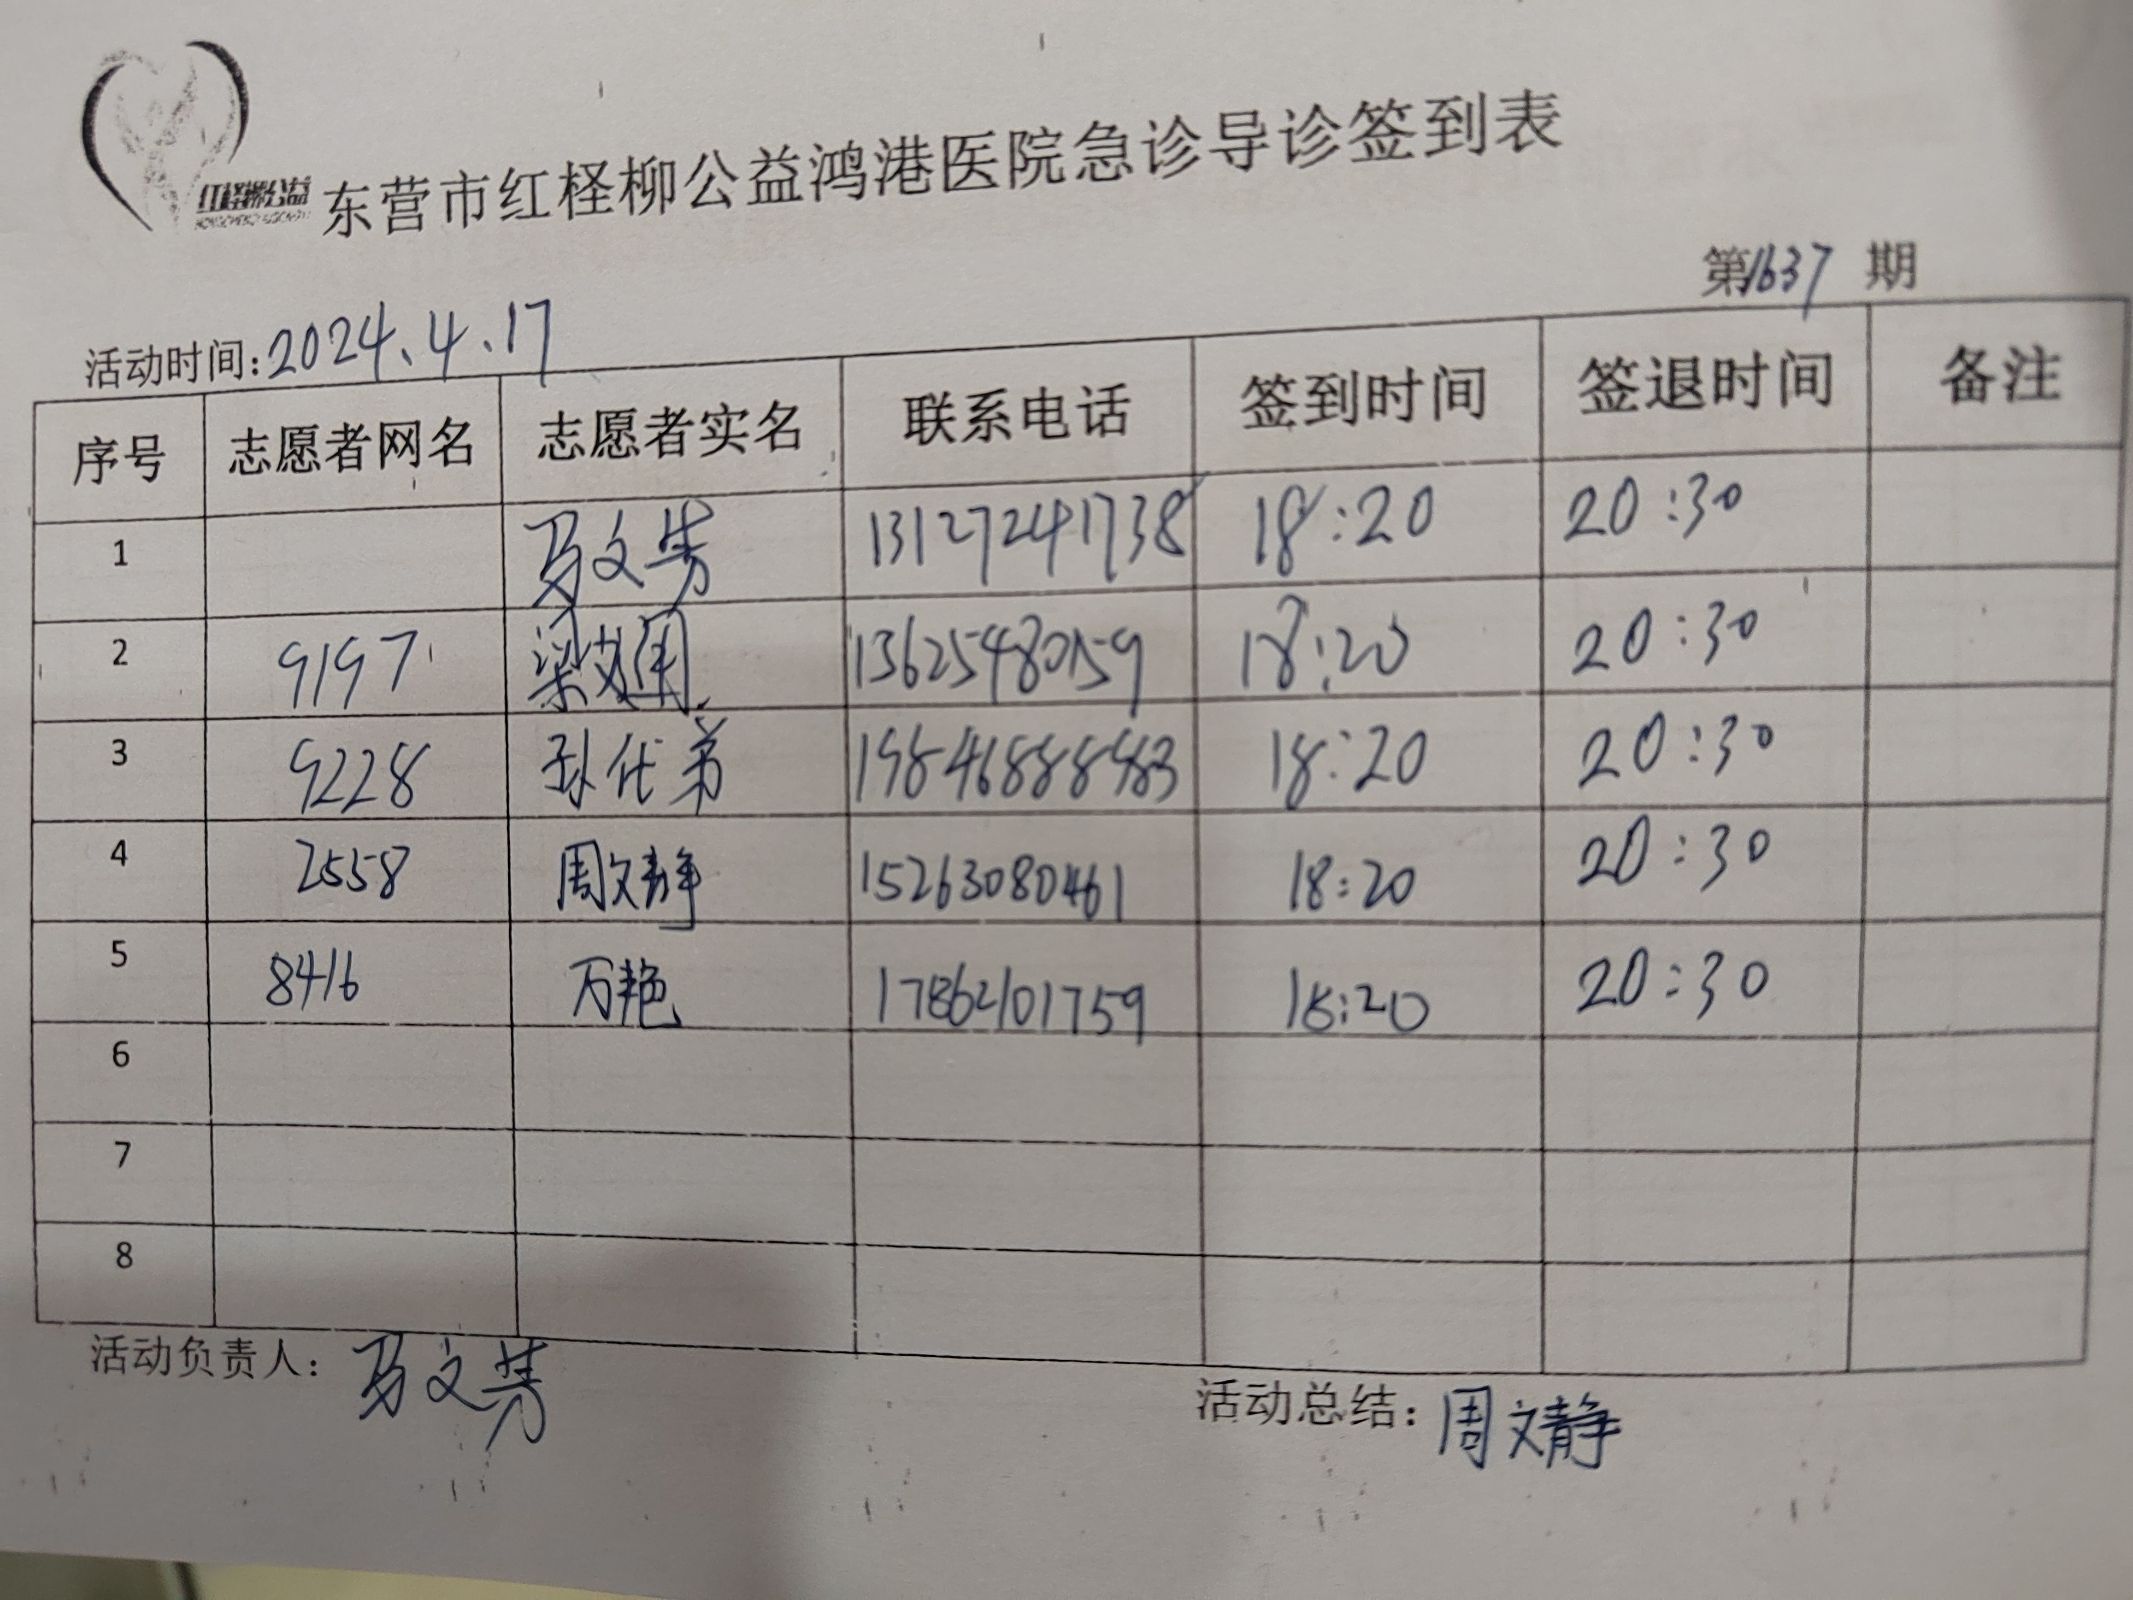 红柽柳公益
东营市红柽柳公益鸿港医院急诊导诊签到表
第1637 期
活动时间:2024.4.17
序号 志愿者网名 志愿者实名 联系电话 签到时间 签退时间 备注
1 马文芳 13127241738 18:20 20:30
2 9197 13625480159 18:20 20:30
3 9228 孙代弟 19846888483 18:20 20:30
4 2558 周文静 15263080461 18:20 20:30
5 8416 万艳 17862101759 18:20 20:30
6
7
8
活动负责人: 马文芳
活动总结: 周文静